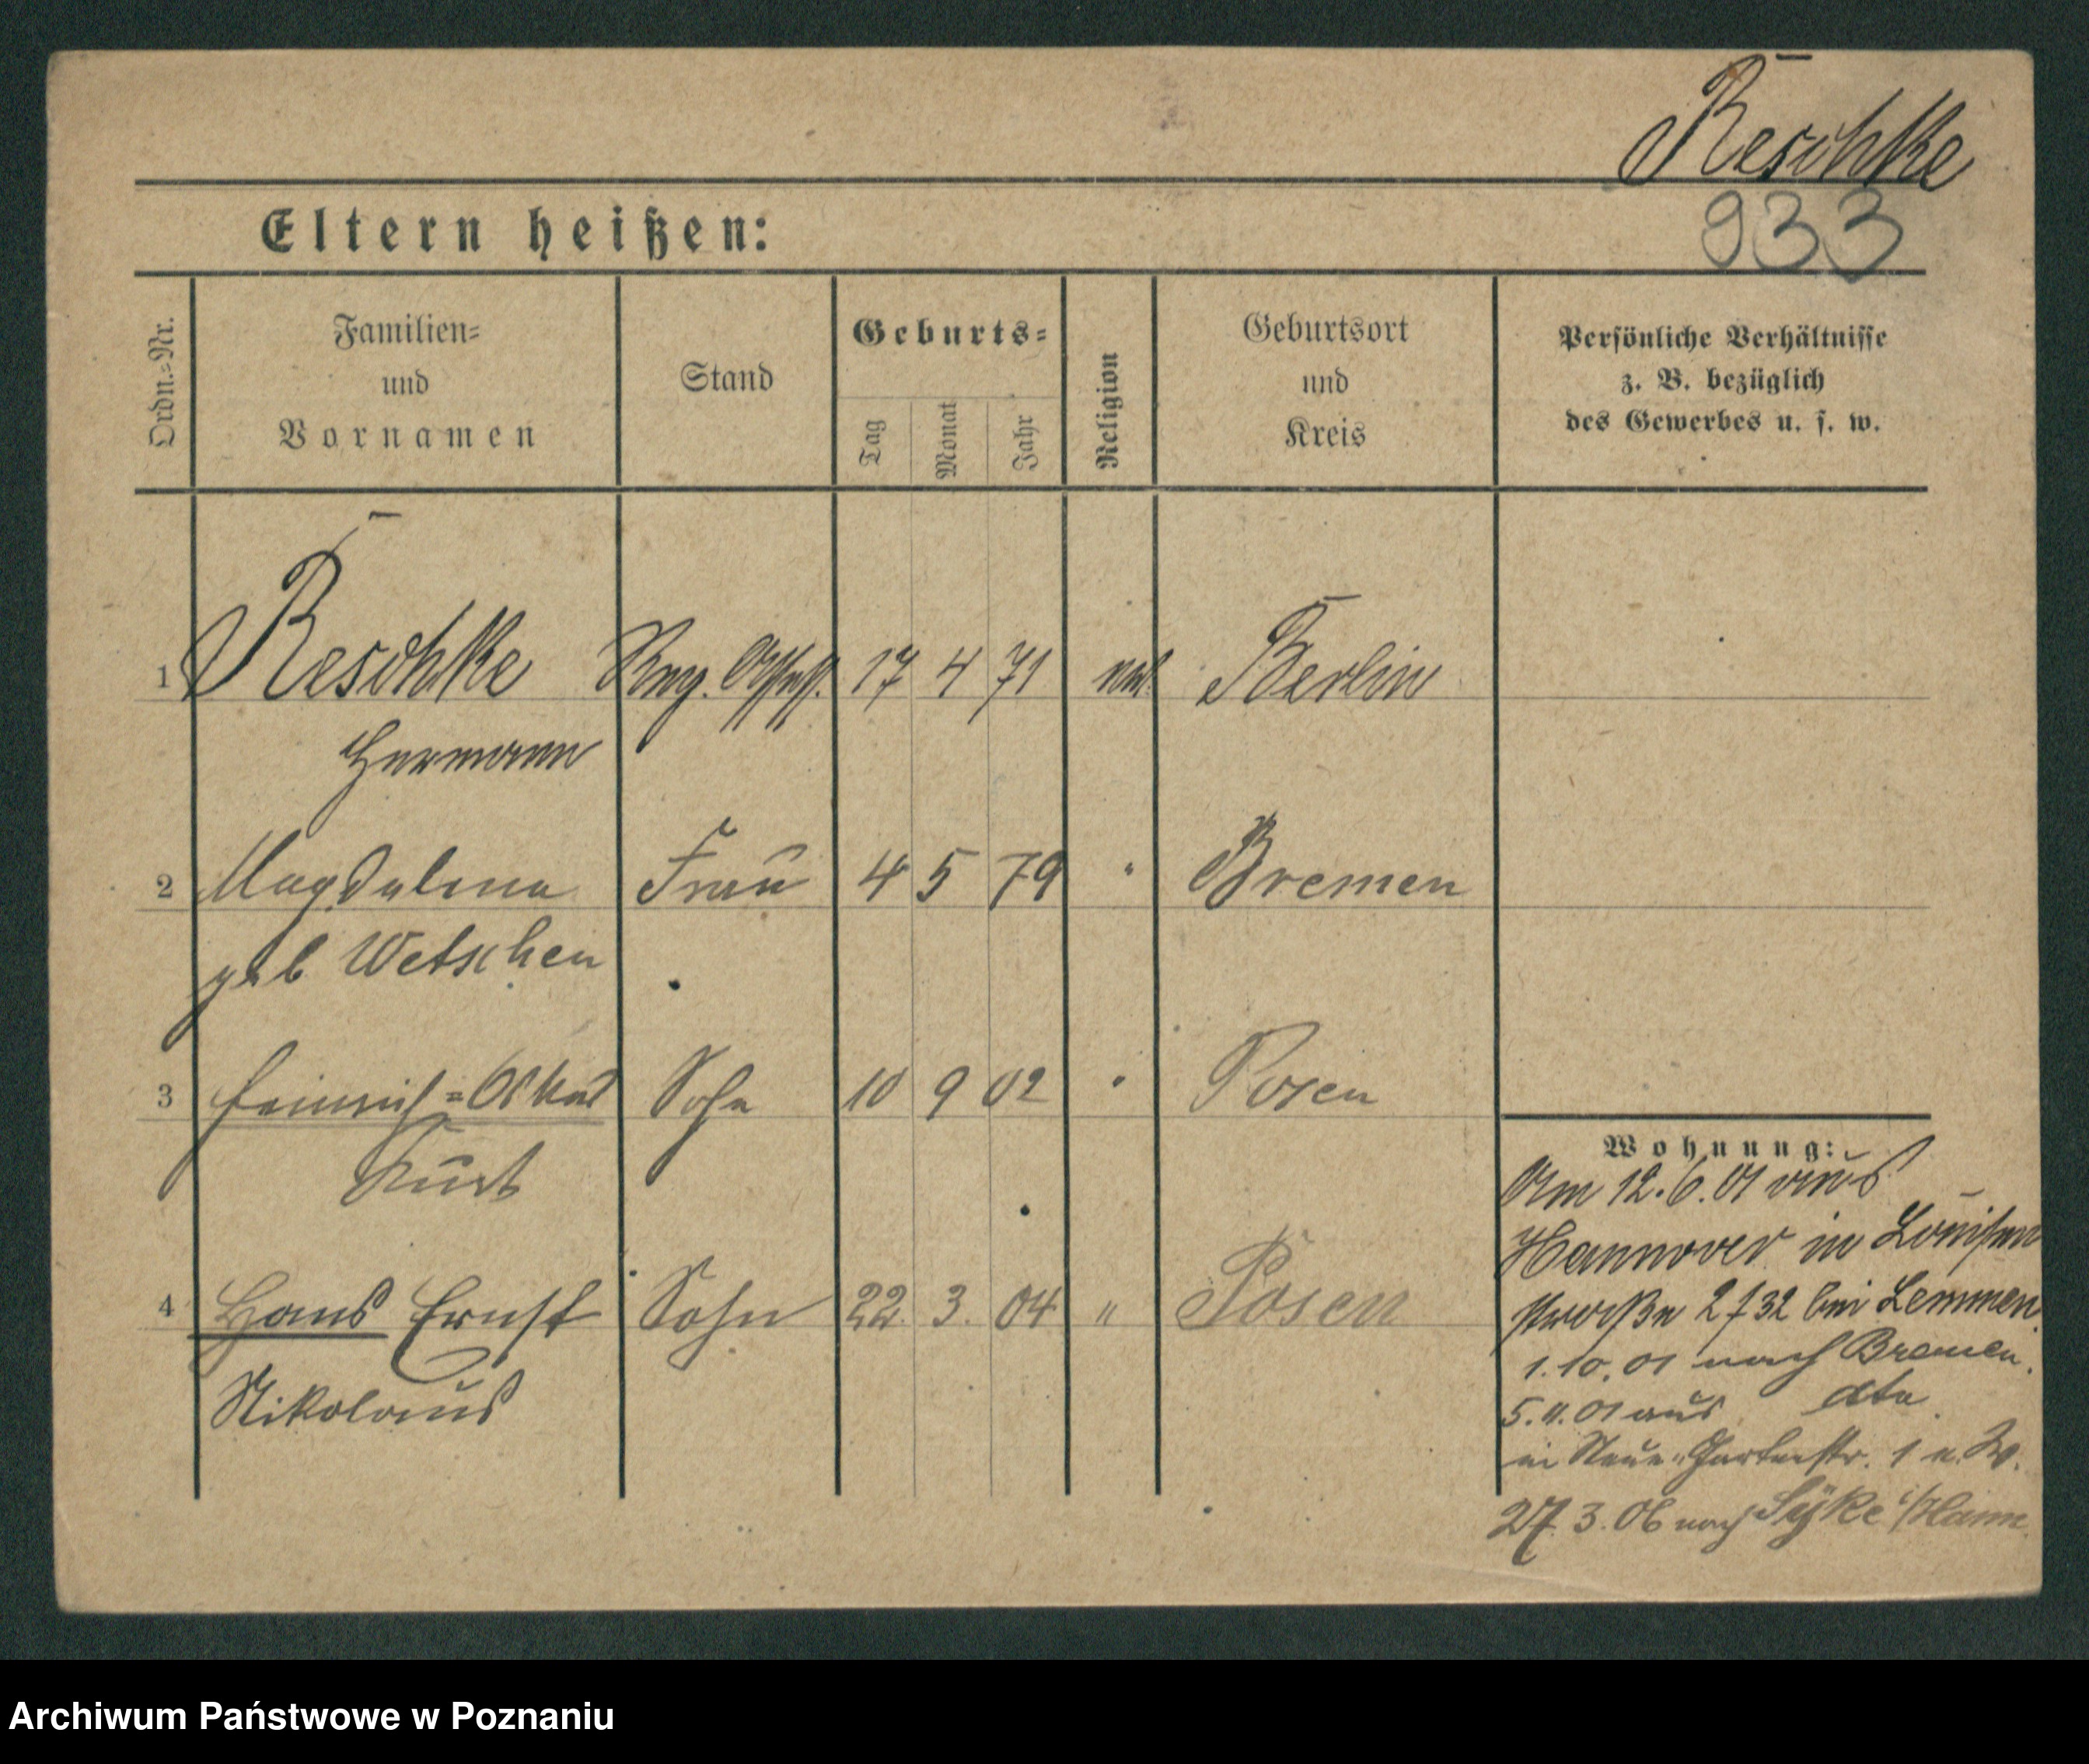 Reschke
933
Eltern heißen:
Ordn.=Nr.
Familien=
und
Vornamen
Stand
Geburts=
Tag
Monat
Jahr
Religion
Geburtsort
und
Kreis
Persönliche Verhältnisse
z. B. bezüglich
des Gewerbes u. s. w.
1 Reschke Reg. Assess. 17 4 71 Berlin
Hermann
2 Magdalena Frau 4 5 79 " Bremen
geb Wetschen
3 Heinrich=Oskar Sohn 10 9 02 " Posen
Kurt
4 Hans Ernst Sohn 22. 3. 04 " Posen
Nikolaus
Wohnung:
Am 12.6.01 aus
Hannover in Louisen
straße 2 f 32 bei Lemmen.
1.10.01 nach Bremen.
5.11.01 aus dto
in Neue=Gartenstr. 1 n. W.
27.3.06 nach Syke i/Hann.
Archiwum Państwowe w Poznaniu